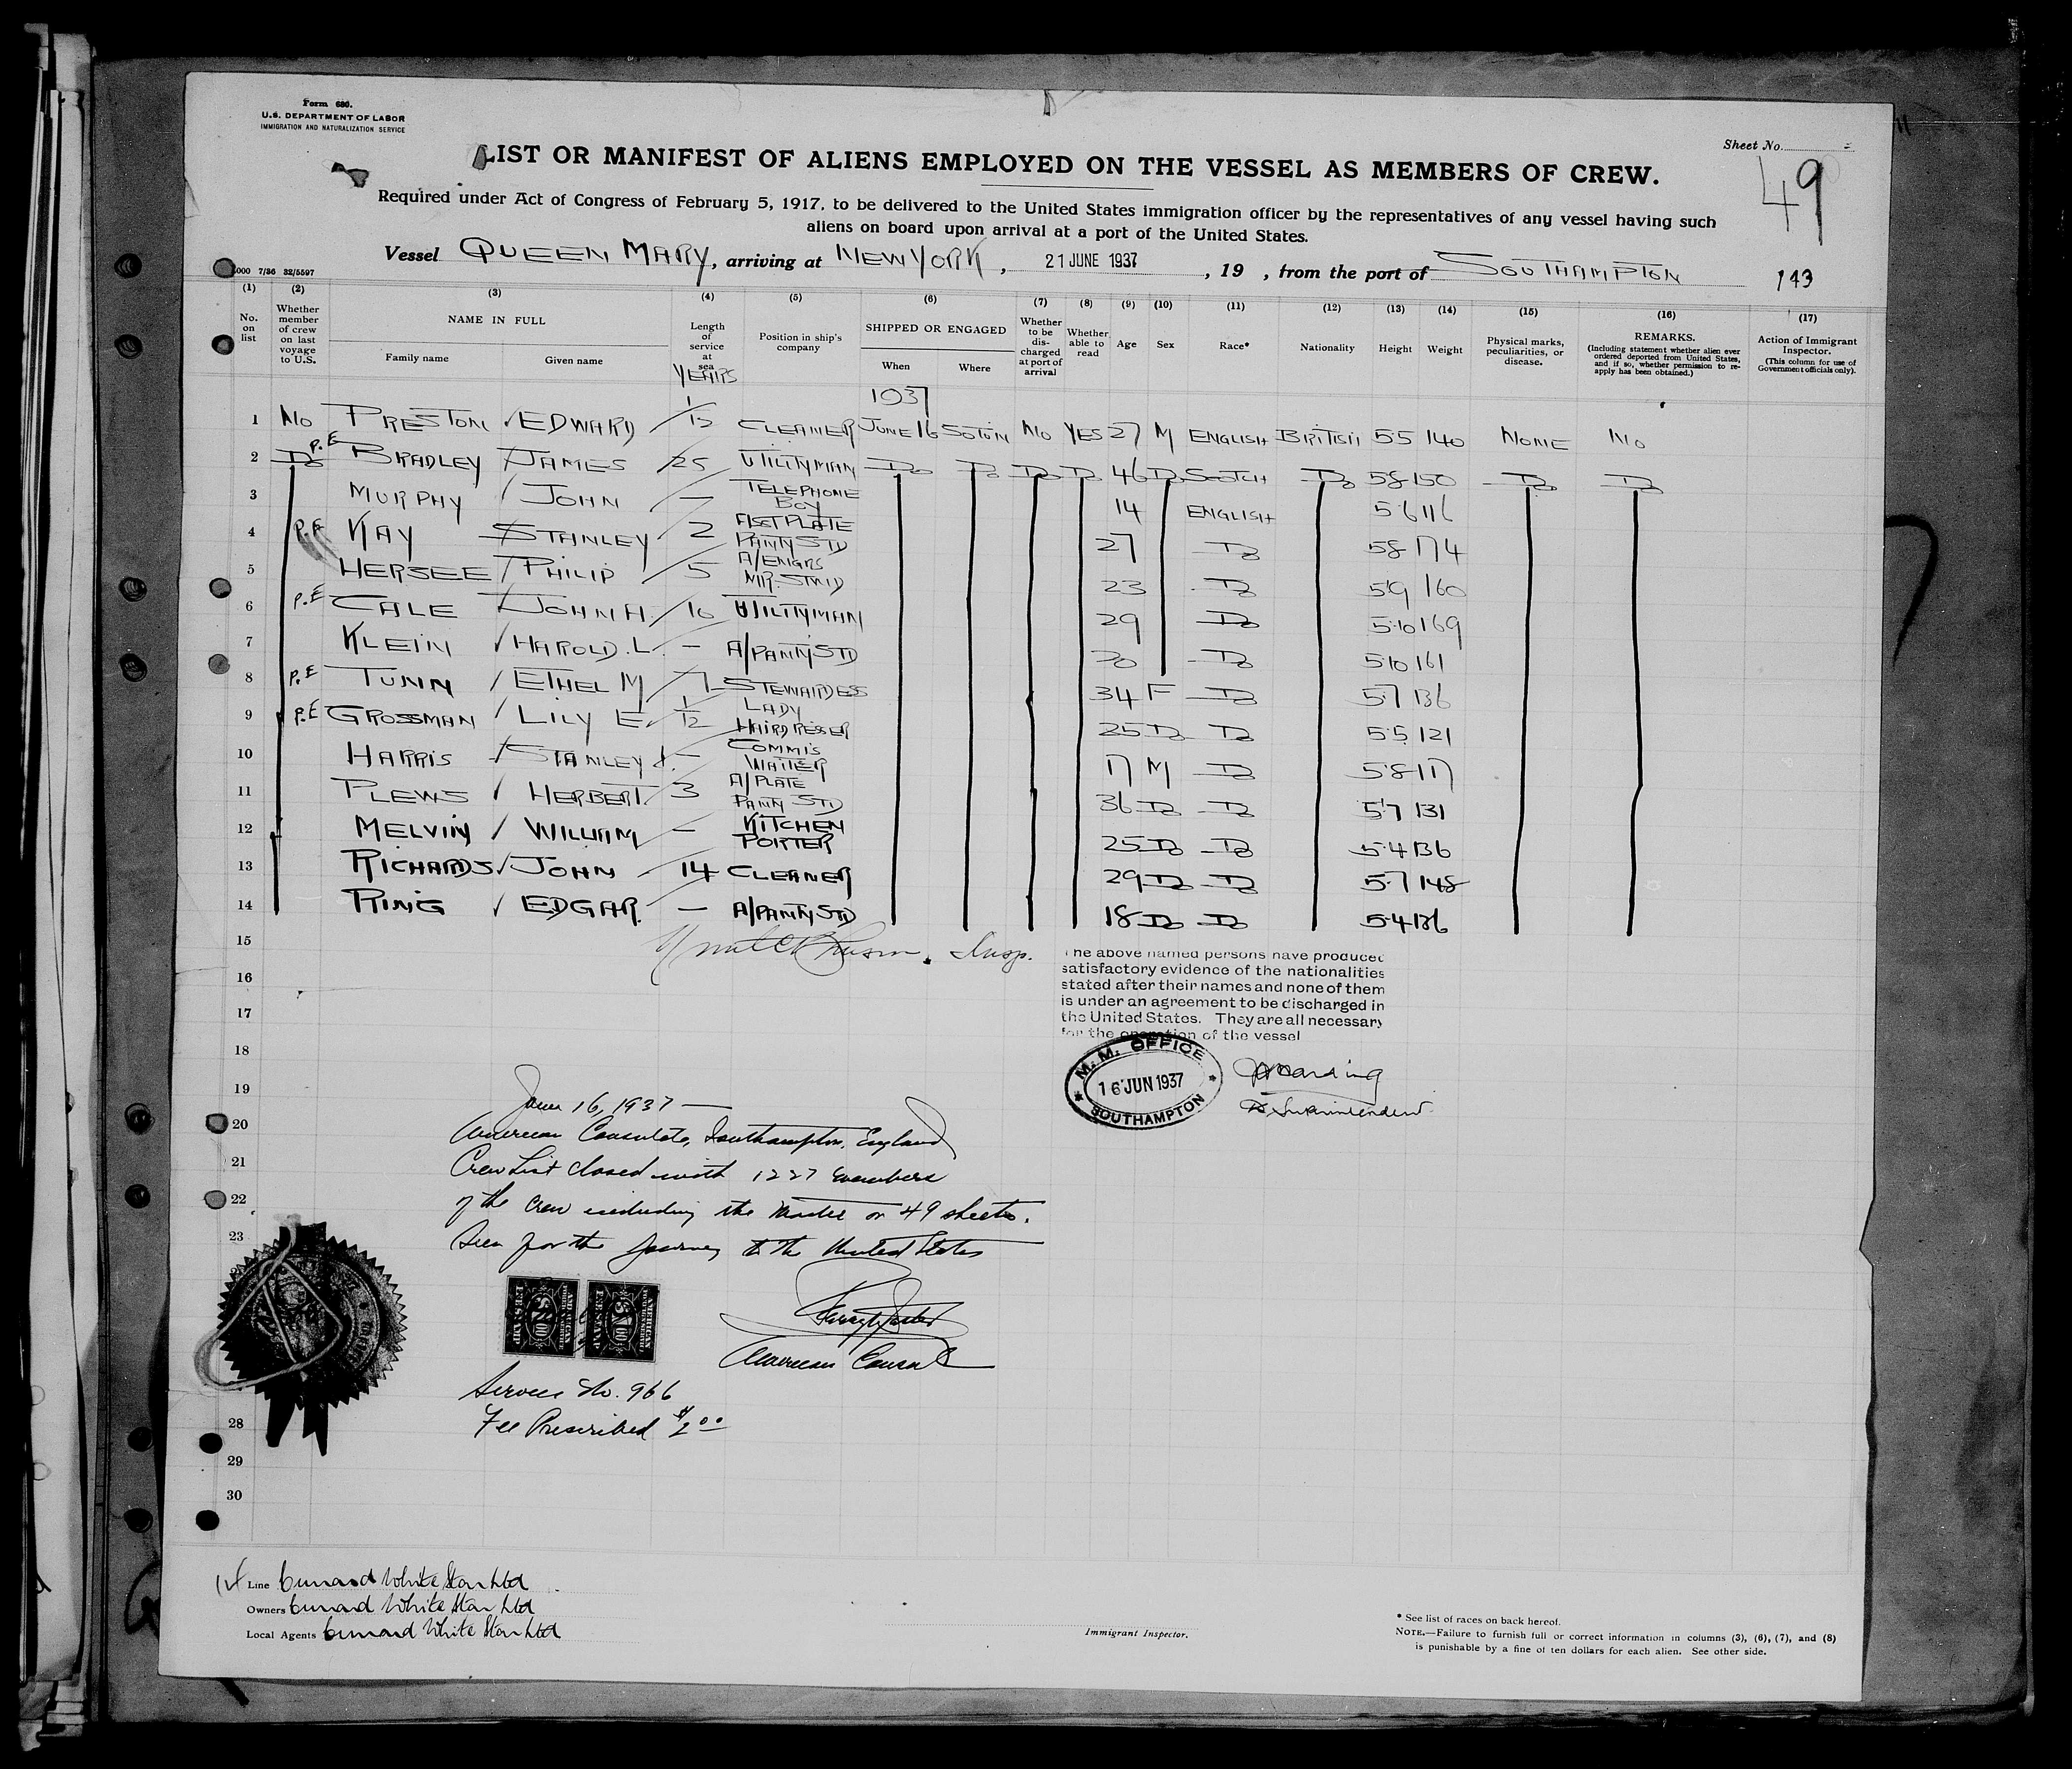 Form 680.
U.S. DEPARTMENT OF LABOR
IMMIGRATION AND NATURALIZATION SERVICE
Sheet No.
49
LIST OR MANIFEST OF ALIENS EMPLOYED ON THE VESSEL AS MEMBERS OF CREW.
Required under Act of Congress of February 5, 1917, to be delivered to the United States immigration officer by the representatives of any vessel having such
aliens on board upon arrival at a port of the United States.
Vessel QUEEN MARY, arriving at NEW YORK, 21 JUNE 1937, 19 , from the port of SOUTHAMPTON
143
000 7/36 32/5597
(1) (2) (3) (4) (5) (6) (7) (8) (9) (10) (11) (12) (13) (14) (15) (16) (17)
No. on list
Whether member of crew on last voyage to U.S.
NAME IN FULL
Family name Given name
Length of service at sea
YEARS
Position in ship's company
SHIPPED OR ENGAGED
When Where
Whether to be discharged at port of arrival
Whether able to read
Age
Sex
Race*
Nationality
Height
Weight
Physical marks, peculiarities, or disease.
REMARKS.
(Including statement whether alien ever ordered deported from United States, and if so, whether permission to reapply has been obtained.)
Action of Immigrant Inspector.
(This column for use of Government officials only).
1937
1 No PRESTON EDWARD 1/12 CLEANER JUNE 16 SOTON NO YES 27 M ENGLISH BRITISH 5 5 140 NONE NO
2 Do P.E BRADLEY JAMES 25 UTILITYMAN Do Do Do Do 46 Do SCOTCH Do 5 8 150 Do Do
3 MURPHY JOHN — TELEPHONE BOY 14 ENGLISH 5 6 116
4 P.E KAY STANLEY 2 ASST PLATE PANTY STD 27 Do 5 8 174
5 HERSEE PHILIP 5 A/ENGRS MR. STWD 23 Do 5 9 160
6 P.E CALE JOHN H 10 UTILITYMAN 29 Do 5 10 169
7 KLEIN HAROLD. L. — A/PANTY STD 20 Do 5 10 161
8 P.E TUNN ETHEL M 7 STEWARDESS 34 F Do 5 7 136
9 P.E GROSSMAN LILY E. 1/12 LADY HAIRDRESSER 25 Do Do 5 5 121
10 HARRIS STANLEY J. — COMMIS WAITER 17 M Do 5 8 117
11 PLEWS HERBERT. 3 A/PLATE PANTY STD 36 Do Do 5 7 131
12 MELVIN WILLIAM — KITCHEN PORTER 25 Do Do 5 4 136
13 RICHARDS JOHN 14 CLEANER 29 Do Do 5 7 148
14 RING EDGAR. — A/PANTY STD 18 Do Do 5 4 136
15
Insp.
The above named persons have produced
satisfactory evidence of the nationalities
stated after their names and none of them
is under an agreement to be discharged in
the United States. They are all necessary
for the operation of the vessel
16
17
18
M.M. OFFICE
16 JUN 1937
SOUTHAMPTON
Harding
Superintendent
19
June 16, 1937 —
20
American Consulate, Southampton, England
21
Crew List closed with 1227 members
22
of the crew including the Master on 49 sheets.
23
Seen for the journey to the United States
AMERICAN
FEE STAMP
American Consul
Service No. 966
Fee Prescribed $2 00
28
29
30
14
Line Cunard White Star Ltd
Owners Cunard White Star Ltd
Local Agents Cunard White Star Ltd
Immigrant Inspector.
* See list of races on back hereof.
NOTE.—Failure to furnish full or correct information in columns (3), (6), (7), and (8)
is punishable by a fine of ten dollars for each alien. See other side.